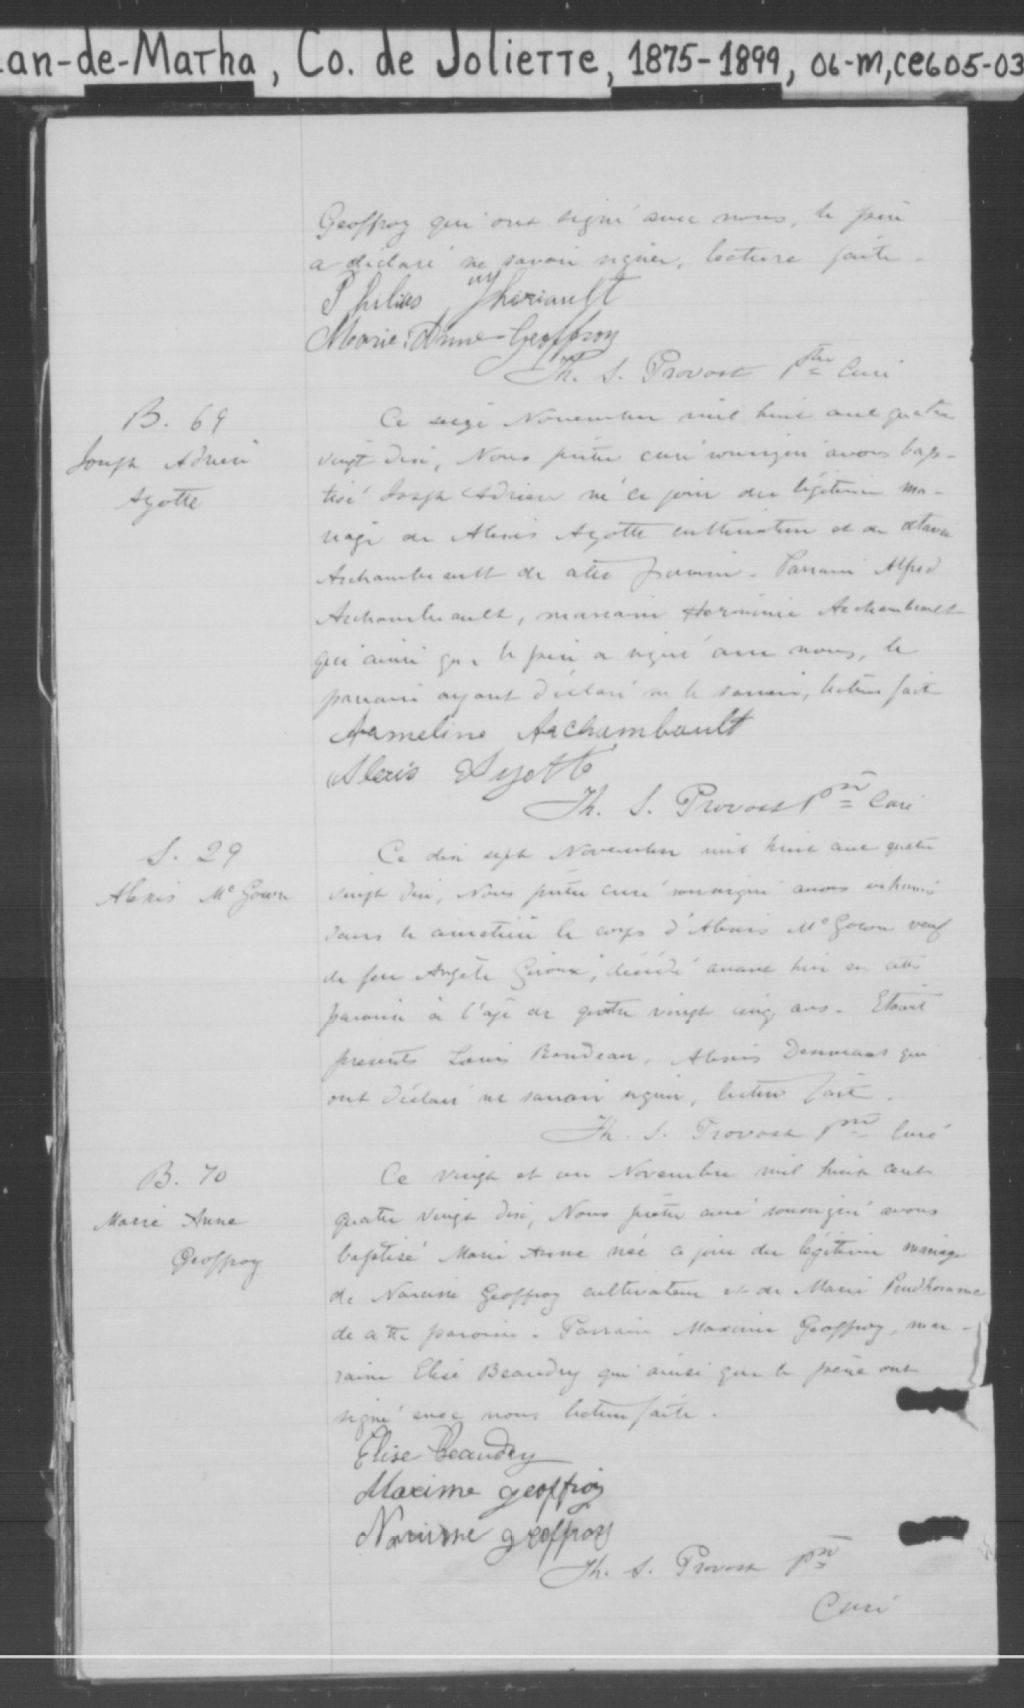 an-de-Matha, Co. de Joliette, 1875-1899, 06-M,CE605-03
Geoffroy qui ont signé avec nous, le père
a déclaré ne savoir signer, lecture faite.
Philias Theriault
Marie Anne Geoffroy
Th. S. Provost Ptre Curé
B. 69
Joseph Adrien
Ayotte
Ce seize Novembre mil huit cent quatre
vingt dix, Nous prêtre curé soussigné avons bap-
tisé Joseph Adrien né ce jour du légitime ma-
riage de Alexis Ayotte cultivateur et de
Archambeault de cette paroisse. Parrain Alfred
Archambeault, marraine Herminie Archambeault
qui ainsi que le père a signé avec nous, le
parrain ayant déclaré ne le savoir, lecture faite
Armeline Archambault
Alexis Ayotte
Th. S. Provost Ptre Curé
S. 29
Alexis McGown
Ce dix sept Novembre mil huit cent quatre
vingt dix, Nous prêtre curé soussigné avons inhumé
dans le cimetière le corps d'Alexis McGown veuf
de feu Angèle Giroux, décédé avant hier en cette
paroisse à l'âge de quatre vingt cinq ans. Etaient
présents Louis Rondeau, Alexis qui
ont déclaré ne savoir signer, lecture faite.
Th. S. Provost Ptre Curé
B. 70
Marie Anne
Geoffroy
Ce vingt et un Novembre mil huit cent
quatre vingt dix, Nous prêtre curé soussigné avons
baptisé Marie Anne née ce jour du légitime mariage
de Narcisse Geoffroy cultivateur et de Marie Prudhomme
de cette paroisse. Parrain Maxime Geoffroy, mar-
raine Elise Beaudry qui ainsi que le père ont
signé avec nous lecture faite.
Elise Beaudry
Maxime geoffroy
geoffroy
Th. S. Provost Ptre
Curé